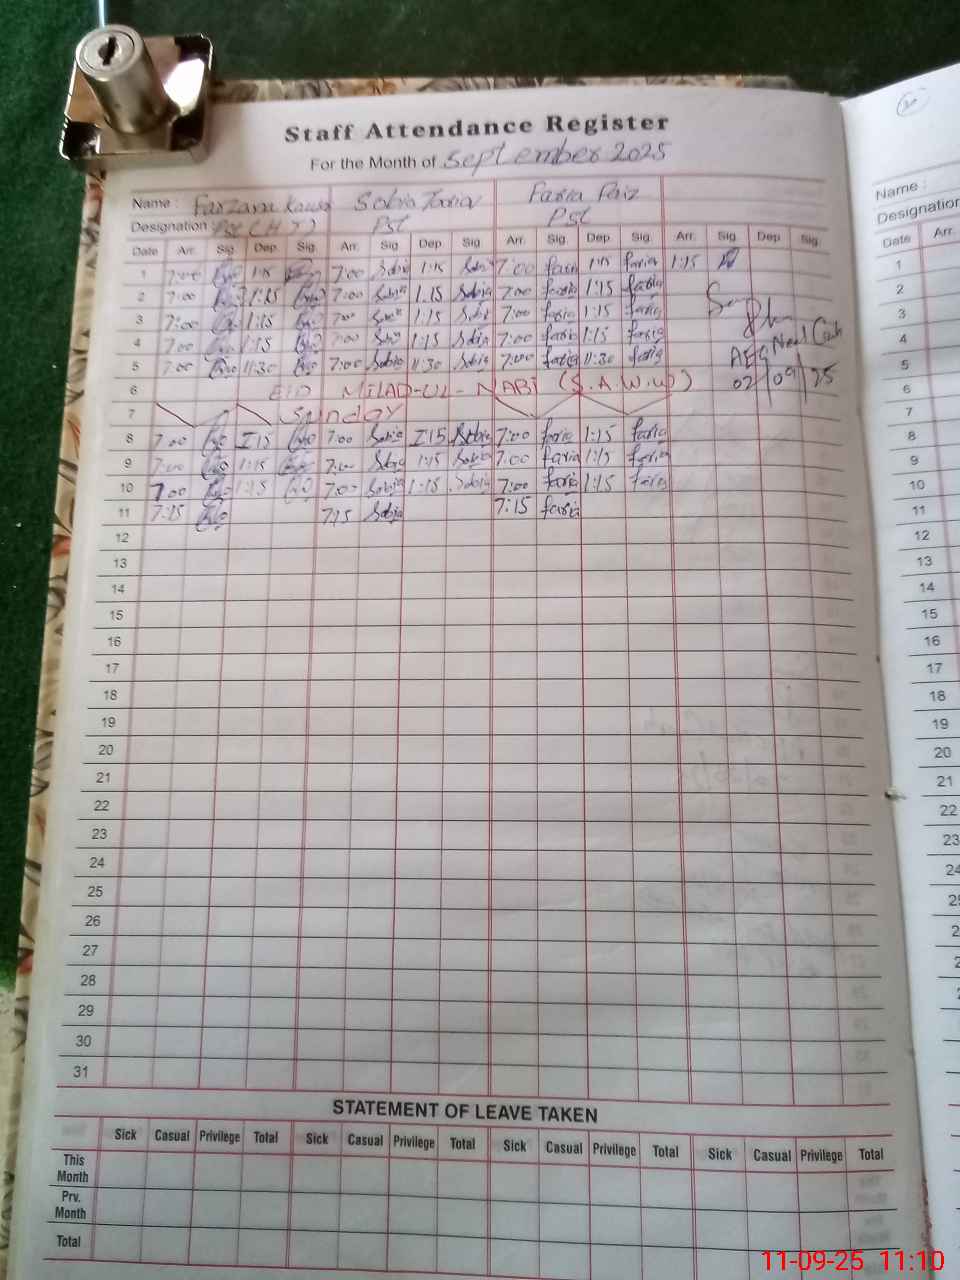 Staff Attendance Register
For the Month of September 2025
Name : Farzana Kausar Sobia Tariq Faria Faiz
Designation : PST (H.T) PST PST
Date Arr. Sig. Dep. Sig. Arr. Sig. Dep. Sig. Arr. Sig. Dep. Sig. Arr. Sig. Dep. Sig.
1 7:00 1:15 7:00 Sobia 1:15 Sobia 7:00 faria 1:15 faria 1:15
2 7:00 1:15 7:00 Sobia 1:15 Sobia 7:00 faria 1:15 faria
3 7:00 1:15 7:00 Sobia 1:15 Sobia 7:00 faria 1:15 faria
4 7:00 1:15 7:00 Sobia 1:15 Sobia 7:00 faria 1:15 faria
5 7:00 11:30 7:00 Sobia 11:30 Sobia 7:00 faria 11:30 faria
AEO
02/09/25
6 EID MILAD-UL-NABI (S.A.W.W)
7 Sunday
8 7:00 1:15 7:00 Sobia 1:15 Sobia 7:00 faria 1:15 faria
9 7:00 1:15 7:00 Sobia 1:15 Sobia 7:00 faria 1:15 faria
10 7:00 1:15 7:00 Sobia 1:15 Sobia 7:00 faria 1:15 faria
11 7:15 7:15 Sobia 7:15 faria
12
13
14
15
16
17
18
19
20
21
22
23
24
25
26
27
28
29
30
31
STATEMENT OF LEAVE TAKEN
Sick Casual Privilege Total Sick Casual Privilege Total Sick Casual Privilege Total Sick Casual Privilege Total
This Month
Prv. Month
Total
Name :
Designation
Date Arr.
1
2
3
4
5
6
7
8
9
10
11
12
13
14
15
16
17
18
19
20
21
22
23
24
11-09-25 11:10